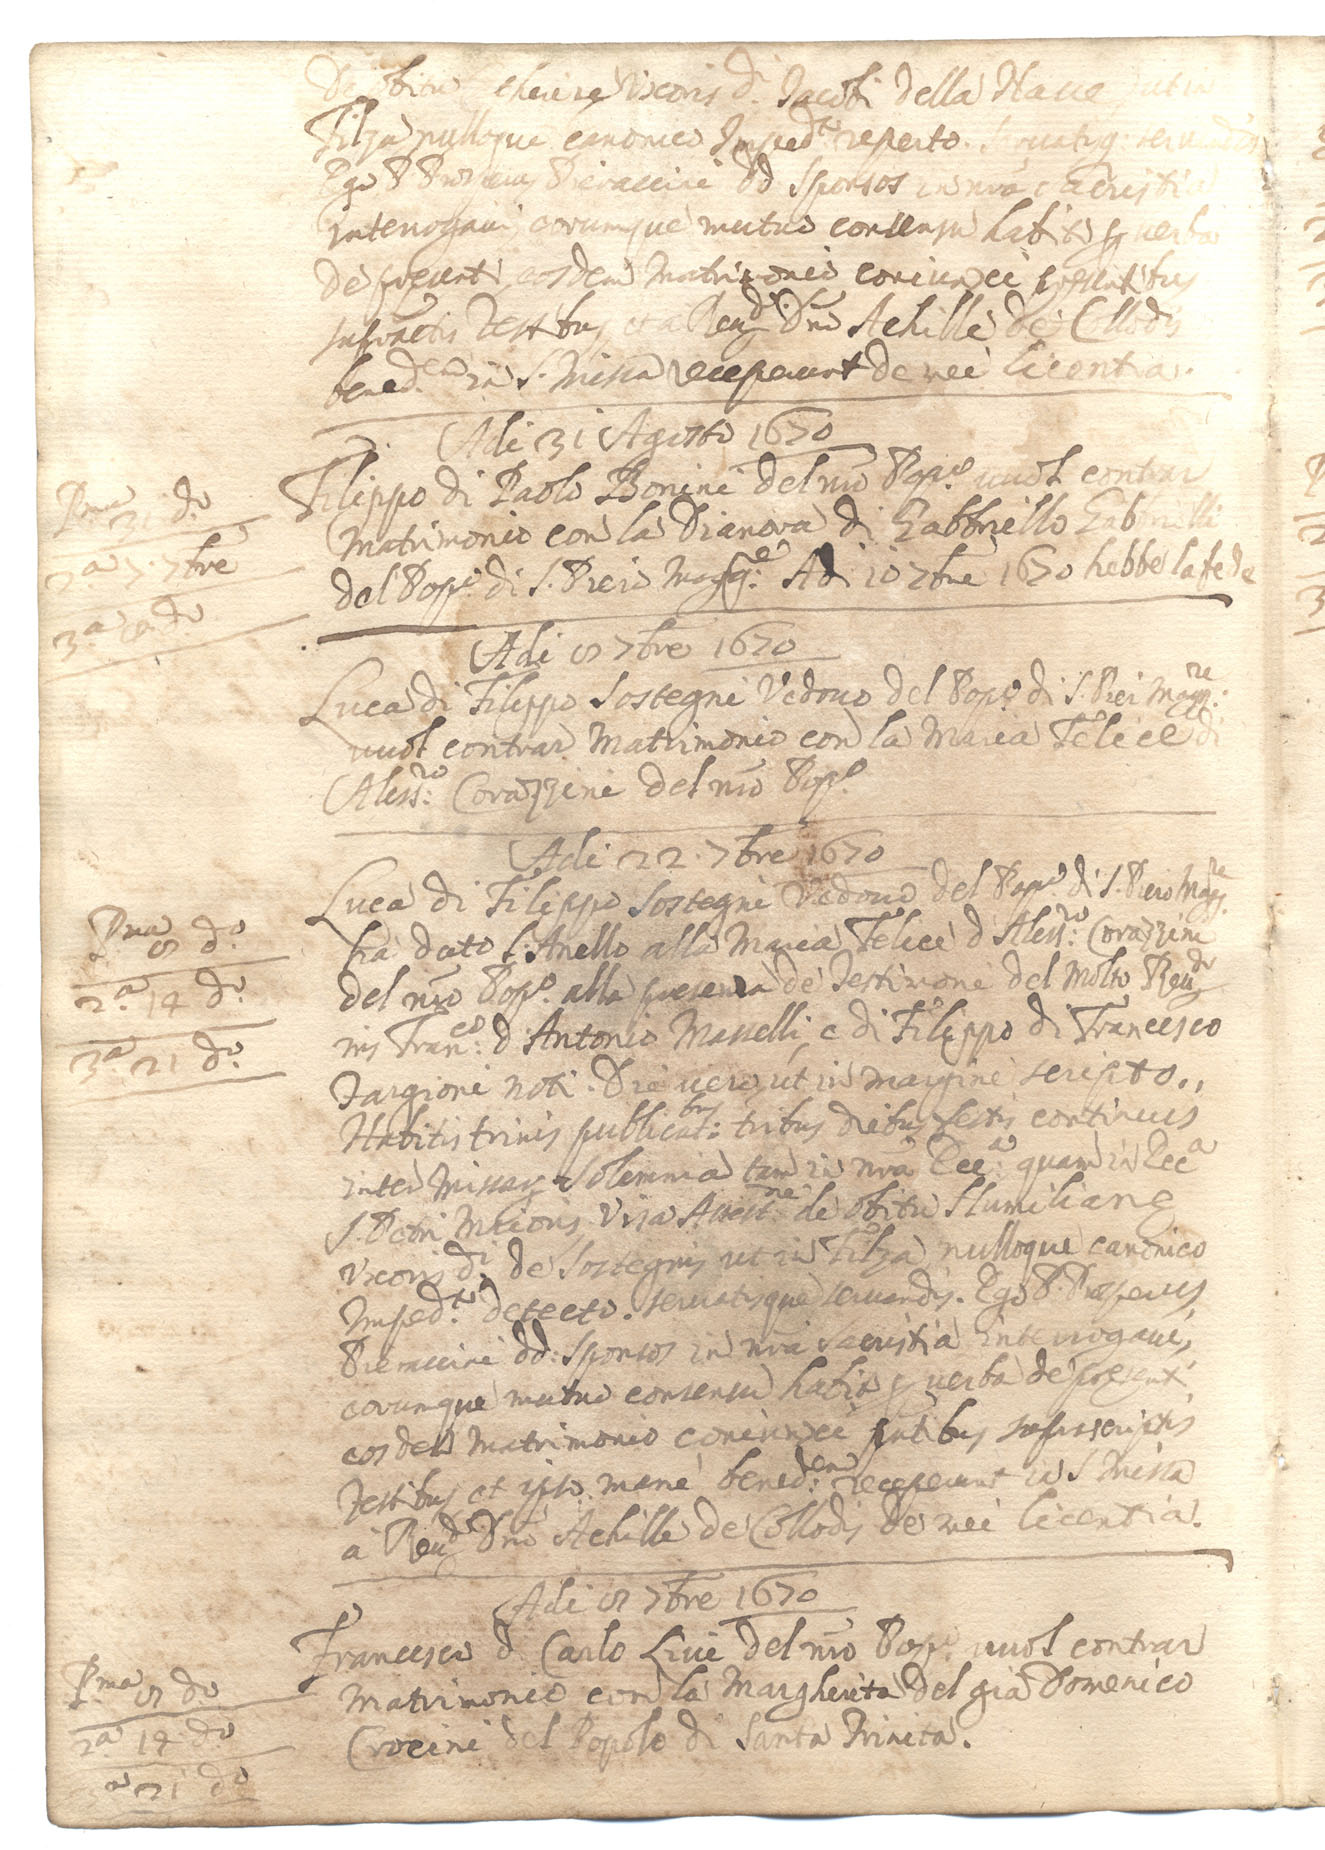 De obitu uxoris d. Jacobi della Naue ut in
Filza nulloque canonico Imped.to reperto. seruatisq: seruandis
Ego P. Prosperus Pieraccini dd Sponsos in nrã sacristia
interrogaui, eorumque mutuo consensu habito p uerba
de presenti, eosdem Matrimonio coniunxi presentibus
infractis Testibus et a Reud. Dno Achille de Collodis
bened.em in S. Missa receperunt de mei licentia.
Adi 31 Agosto 1670
Filippo di Paolo Bonini del nro Pop.o uuol contrar
Matrimonio con la Dianora di Gabbriello Gabbrielli
del Pop.o di S. Piero Magg.e Adi 10 7bre 1670 hebbe la fede
Pma 31 do
2a 7 7bre
3a do
Adi 7bre 1670
Luca di Filippo Sostegni Vedouo del Pop.o di S. Pier Magg.re
uuol contrar Matrimonio con la Maria Felice di
Aless.ro Corazzini del nro Pop.o
Adi 22 7bre 1670
Luca di Filippo Sostegni Vedouo del Pop.o di S. Piero Magg.re
ha dato l'Anello alla Maria Felice d Aless.ro Corazzini
del nro Pop.o alla presenza de Testimoni del Molto Reud.
Franc.o d Antonio Masselli, e di Filippo di Francesco
Targioni noti. Die uero, ut in margine scripto.,
Habitis trinis publicat.bus tribus diebus festis continuis
inter Missarum Solemnia tam in nrã Ecc.a quam in Ecc.a
S. Petri Maioris, Visa Attest.ne de obitu Humilianę
Vxoris d. de Sostegnis ut in Filza nulloque canonico
Imped.to detecto. seruatisque seruandis. Ego P. Prosperus
Pieraccini dd: Sponsos in nrã sacristia interrogaui,
eorumque mutuo consensu habito p uerba de present.
eosdem Matrimonio coniunxi pntibus infrascriptis
Testibus et ipso mane bened.em receperunt in S. Missa
a Reud. Dno Achille de Collodis de mei licentia.
Pma do.
2.a 14 do.
3a 21 do.
Adi 7bre 1670
Francesco d Carlo Liui del nro Pop.o uuol contrar
Matrimonio con la Margherita del già Domenico
Crocini del Popolo di Santa Trinita.
Pma do
2a. 14 do
3a 21 do